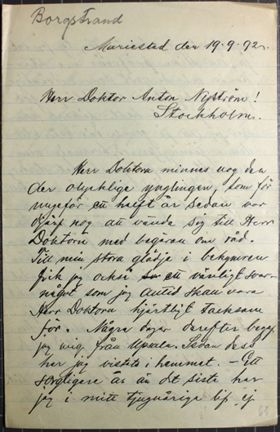 Borgstrand
Mariestad den 19.9.92.
Herr Doktor Anton Nyström!
Stockholm.
Herr Doktorn minnes nog den
der olycklige ynglingen, som för
ungefär ett halft år sedan var
djärf nog att vända sig till Herr
Doktorn med begäran om råd.
Till min stora glädje i bekymren
fick jag också ett vänligt svar
något som jag alltid skall vara
Herr Doktorn hjärtligt tacksam
för. Några dagar derefter begaf
jag mig från Upsala. Sedan dess
har jag vistats i hemmet. – Ett
sorgligare år än det sista har
jag i mitt tjuguåriga lif ej